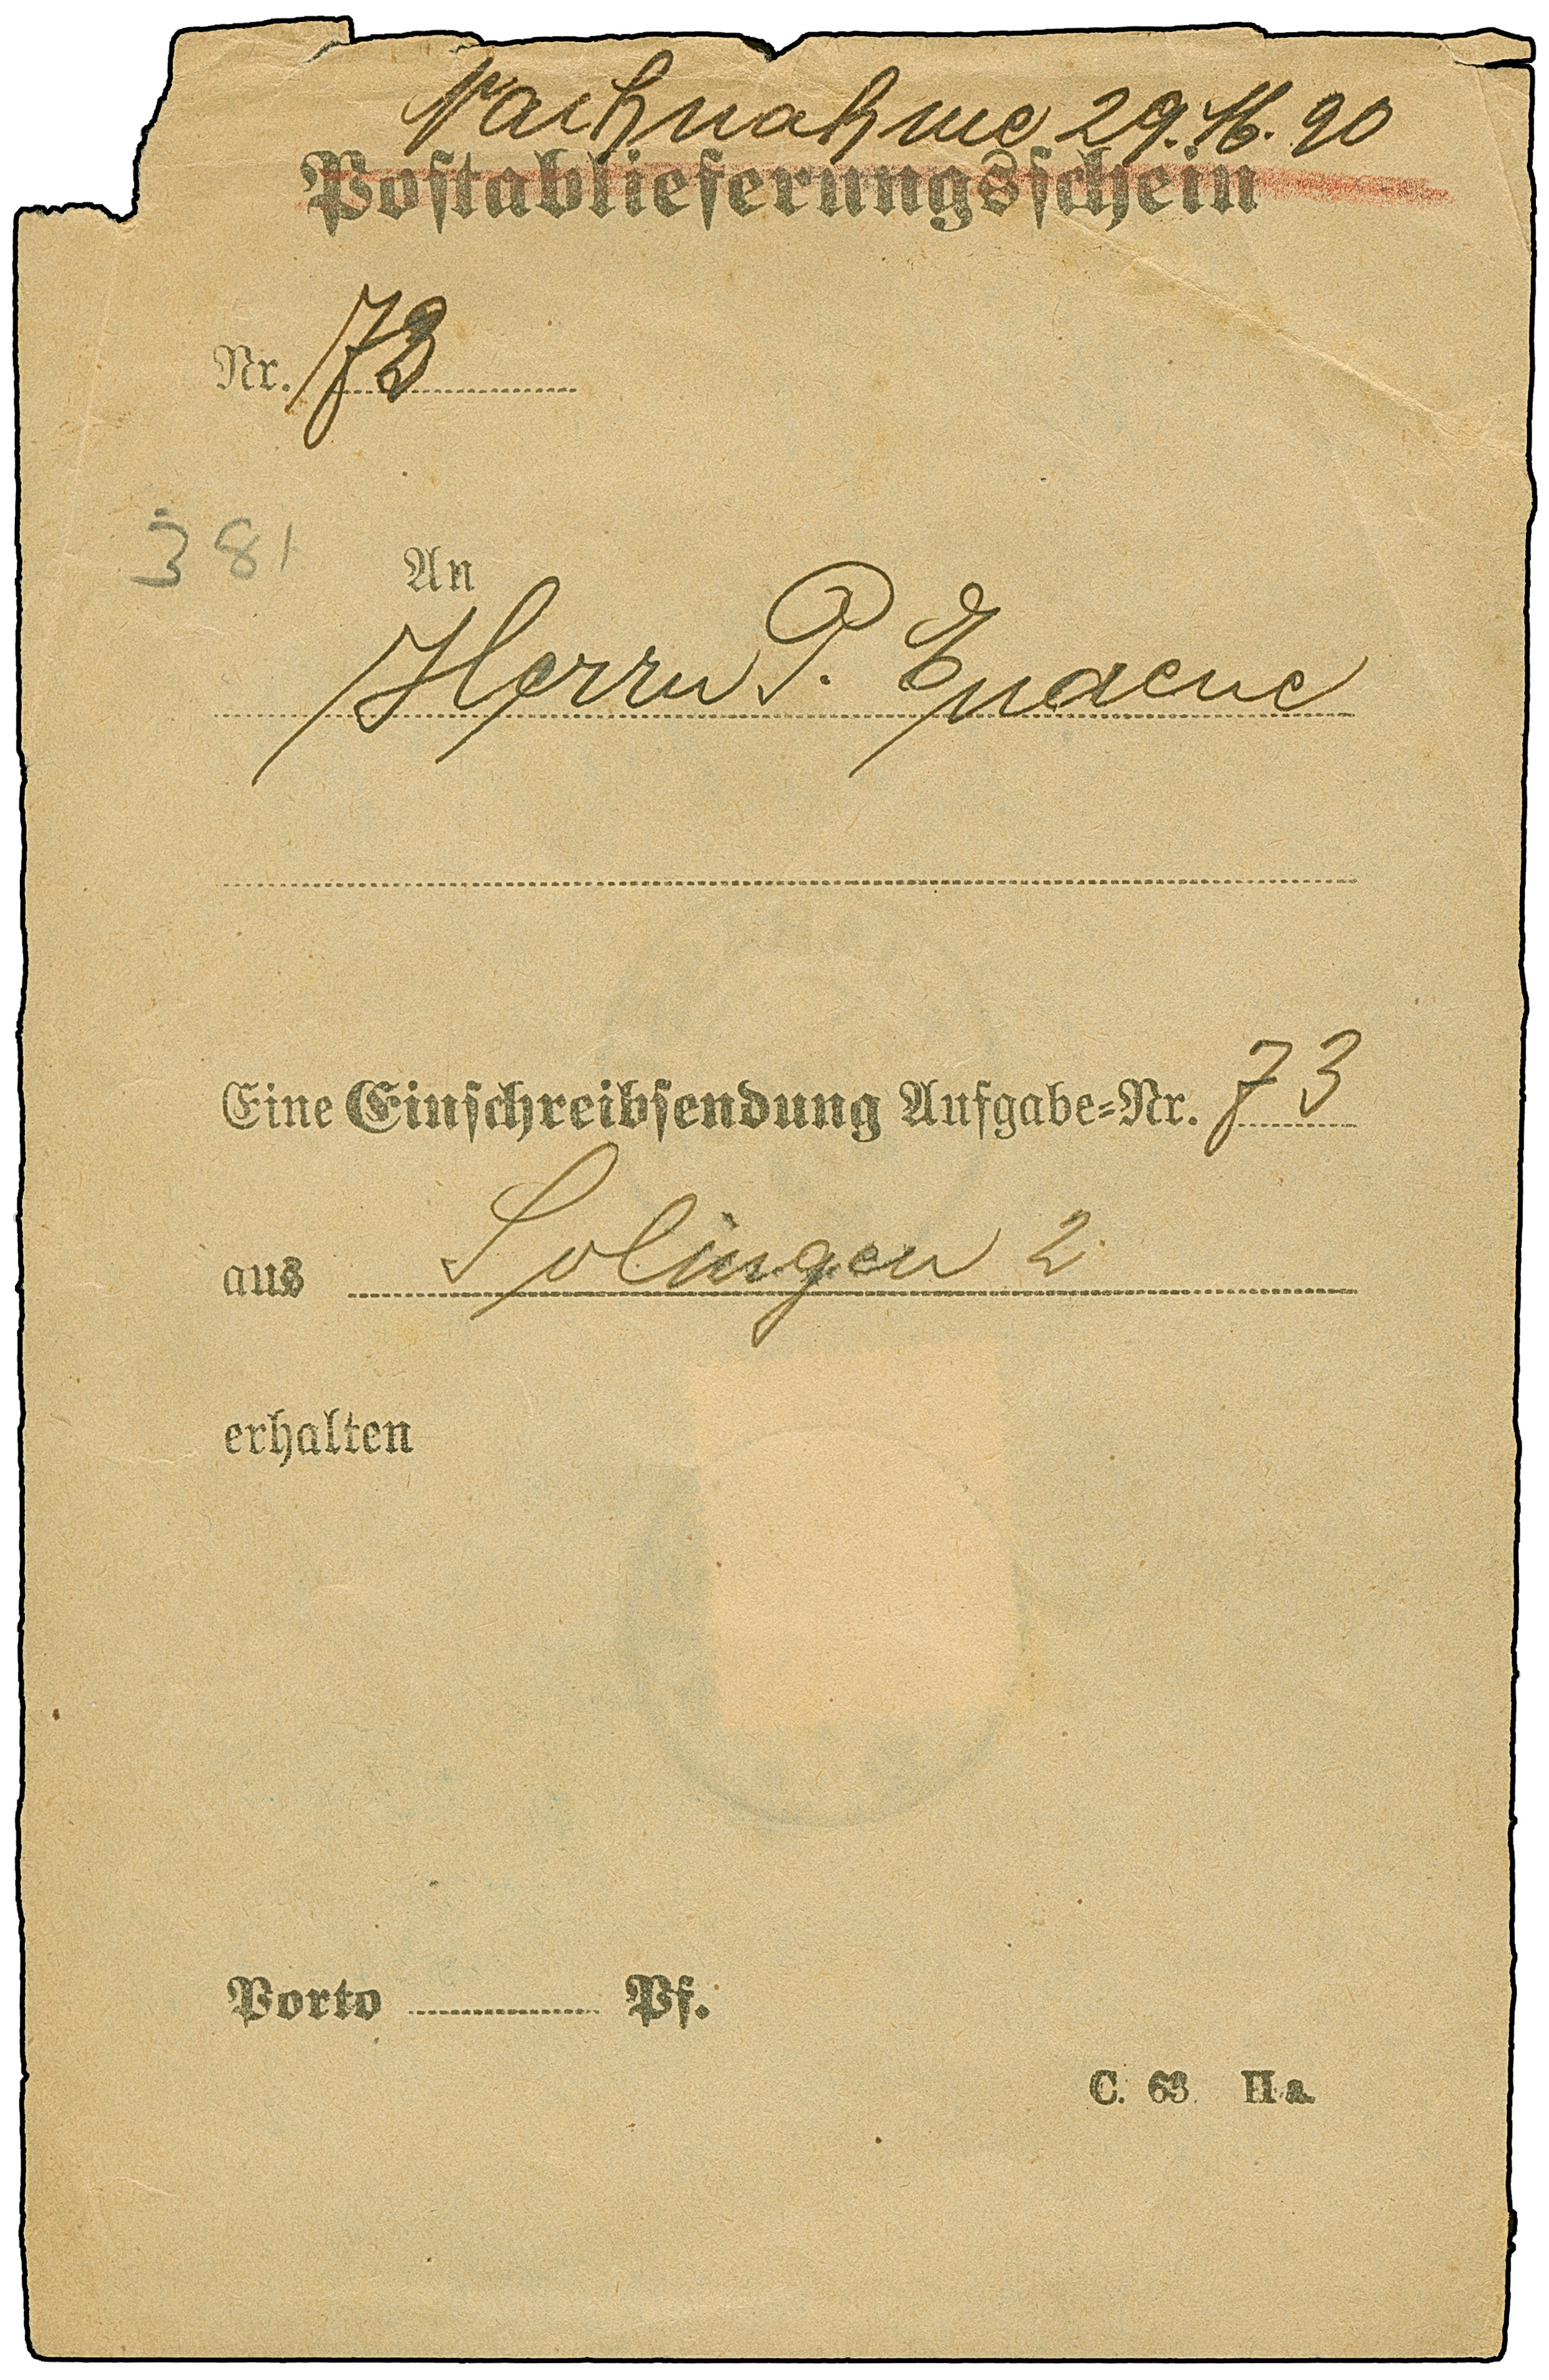 Nachnahme 29. M. 90
Postablieferungsschein
Nr. 73
381
An
Herrn P.
Eine Einschreibsendung Aufgabe-Nr. 73
aus Solingen 2
erhalten
Porto Pf.
C. 63. II a.